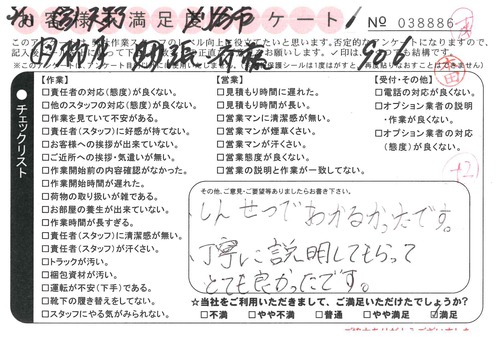 お客様満足度アンケート
№ 038886
【作業】
□責任者の対応(態度)が良くない。
□他のスタッフの対応(態度)が良くない。
□作業を見ていて不安がある。
□責任者(スタッフ)に好感が持てない。
□お客様への挨拶が出来ていない。
□ご近所への挨拶・気遣いが無い。
□作業開始前の内容確認がなかった。
□作業開始時間が遅れた。
□荷物の取り扱いが雑である。
□お部屋の養生が出来ていない。
□作業時間が長すぎる。
□責任者(スタッフ)に清潔感が無い。
□責任者(スタッフ)が汗くさい。
□トラックが汚い。
□梱包資材が汚い。
□運転が不安(下手)である。
□靴下の履き替えをしてない。
□スタッフにやる気がみられない。
【営業】
□見積もり時間に遅れた。
□見積もり時間が長い。
□営業マンに清潔感が無い。
□営業マンが煙草くさい。
□営業マンが汗くさい。
□営業態度が良くない。
□営業の説明と作業が一致してない。
【受付・その他】
□電話の対応が良くない。
□オプション業者の説明
・作業が良くない。
□オプション業者の対応
(態度)が良くない。
チェックリスト
その他、ご意見・ご要望等ありましたらお書き下さい。
しんせつでわかるかったです。
丁寧に説明してもらって
とても良かったです。
☆当社をご利用いただきまして、ご満足いただけたでしょうか?
□不満 □やや不満 □普通 □やや満足 ☑満足